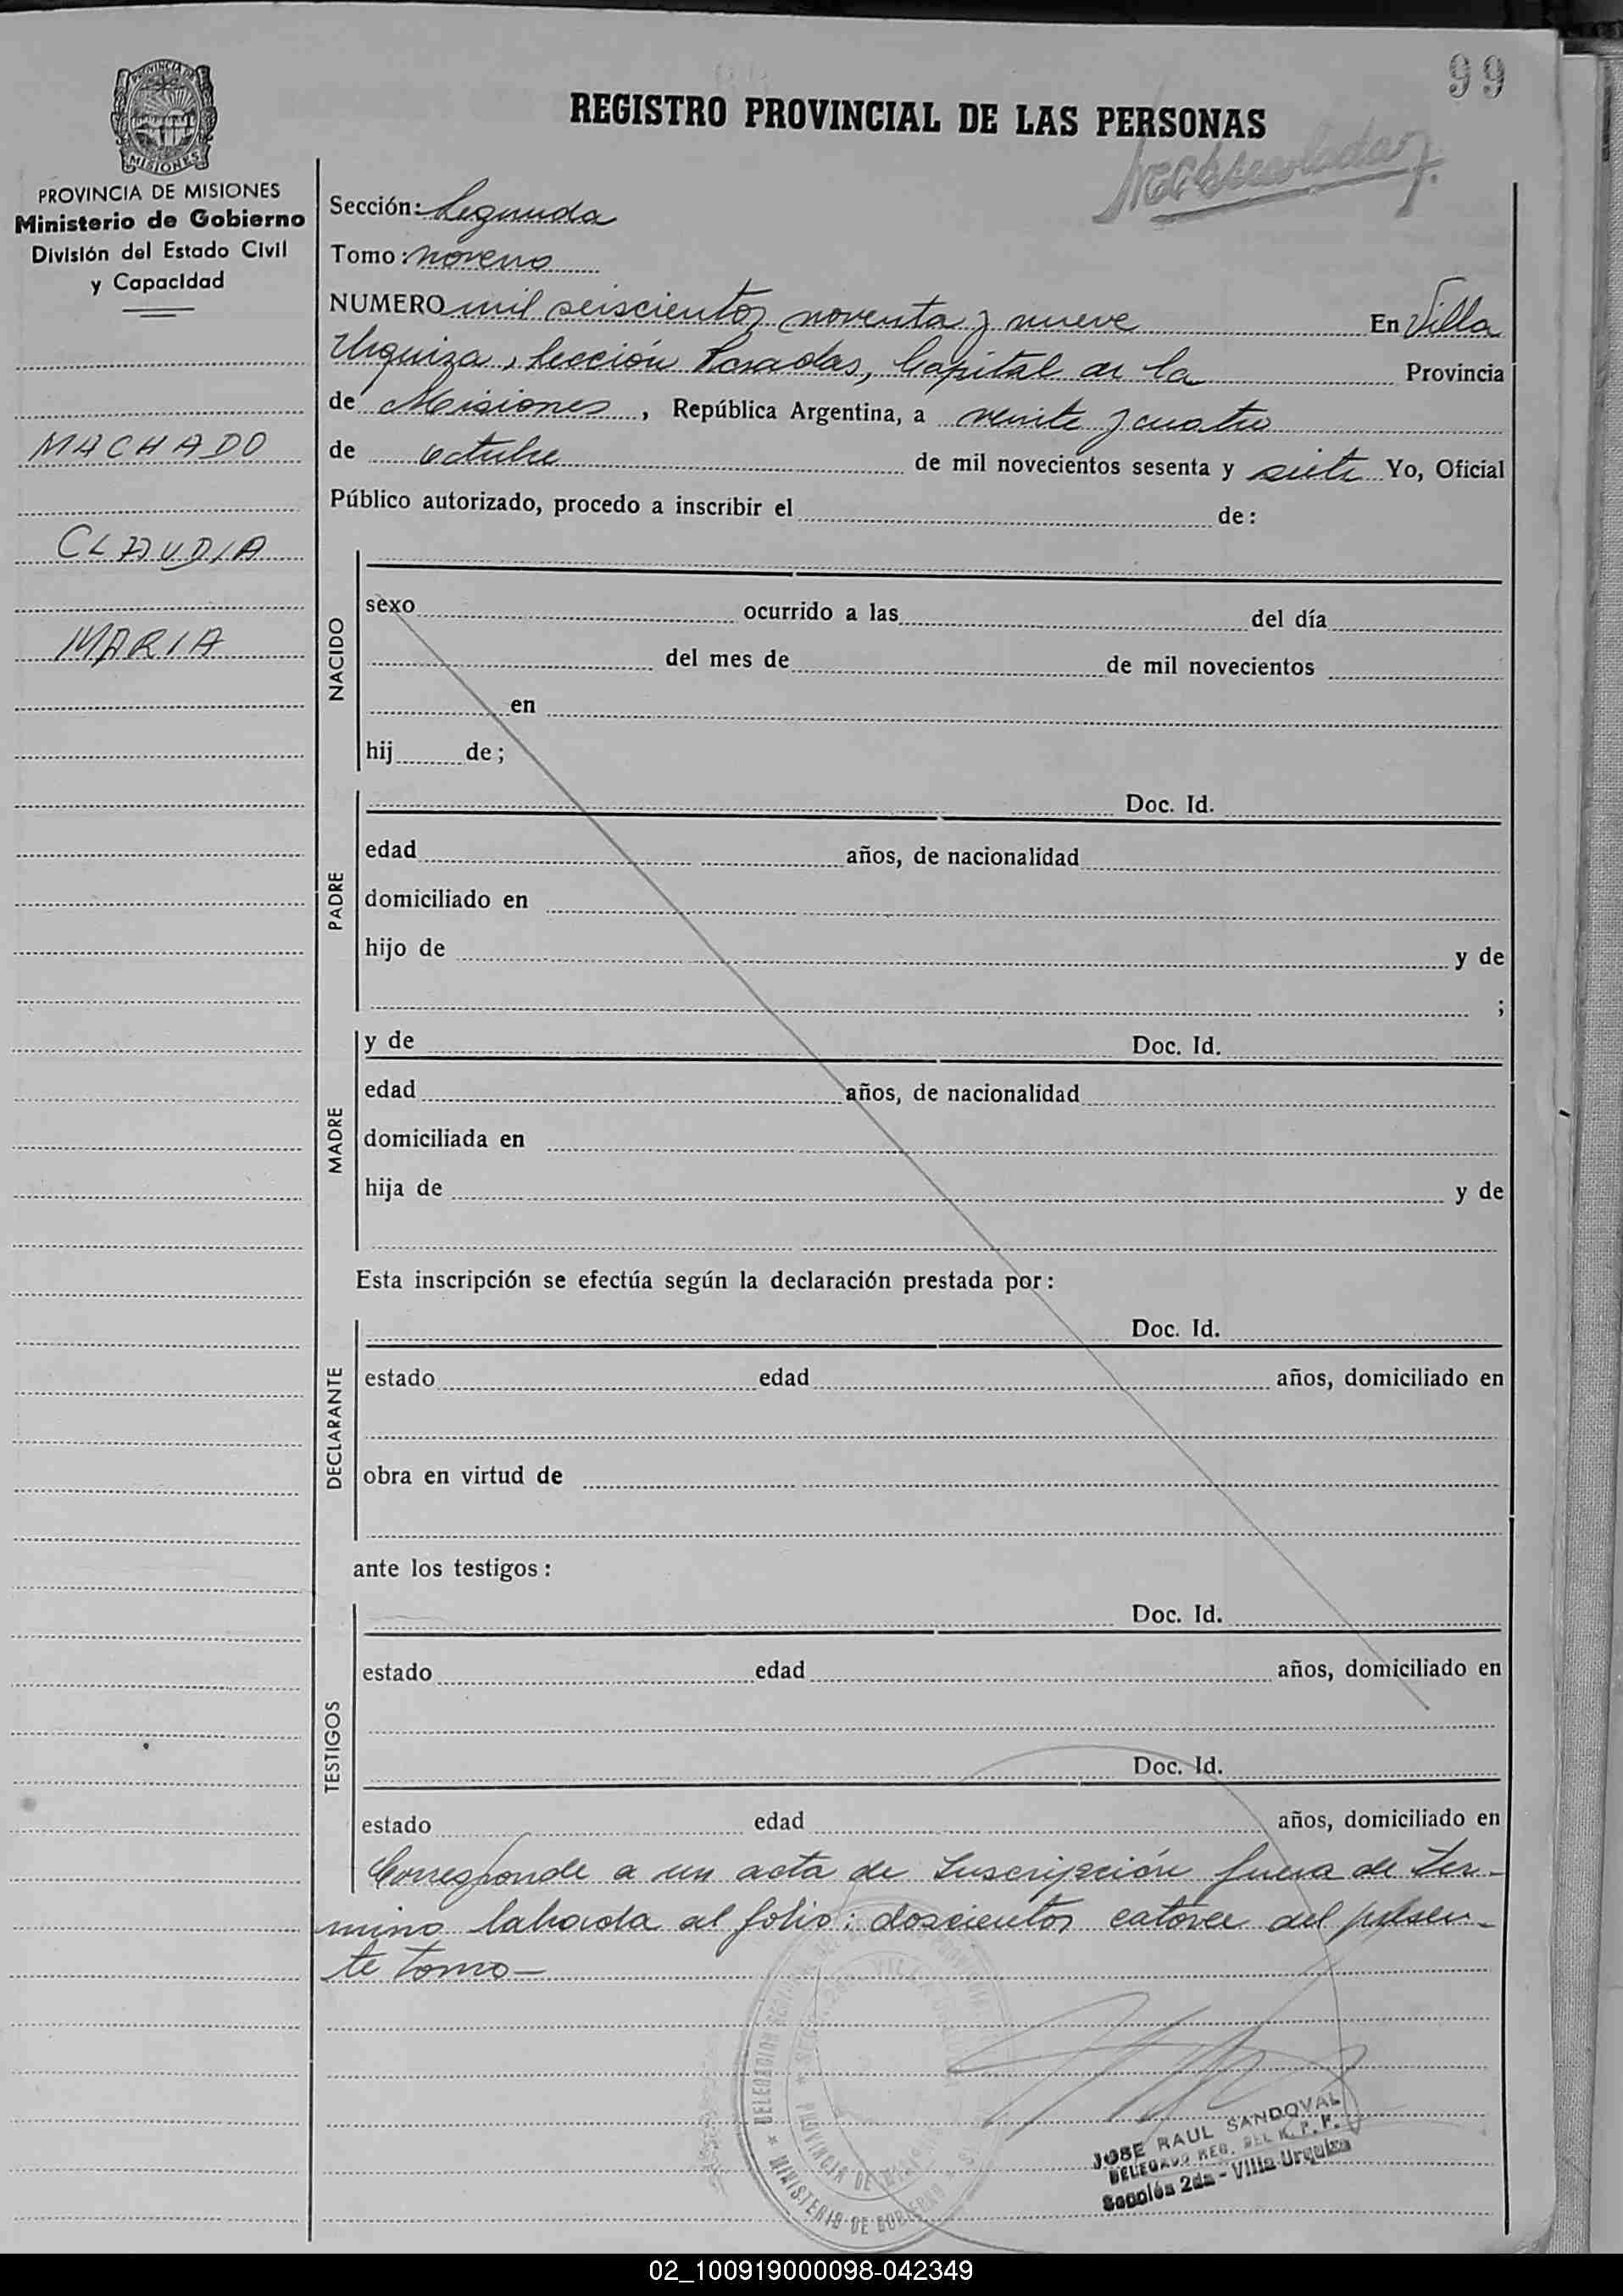 99
REGISTRO PROVINCIAL DE LAS PERSONAS
PROVINCIA DE
MISIONES
PROVINCIA DE MISIONES
Ministerio de Gobierno
División del Estado Civil
y Capacidad
MACHADO
CLAUDIA
MARIA
Sección: Segunda
Tomo: noveno
NUMERO mil seiscientos noventa y nueve En Villa
Urquiza, Sección Posadas, Capital de la Provincia
de Misiones, República Argentina, a veinte y cuatro
de octubre de mil novecientos sesenta y siete Yo, Oficial
Público autorizado, procedo a inscribir el de:
NACIDO
sexo ocurrido a las del día
del mes de de mil novecientos
en
hij de;
PADRE
Doc. Id.
edad años, de nacionalidad
domiciliado en
hijo de y de
;
MADRE
y de Doc. Id.
edad años, de nacionalidad
domiciliada en
hija de y de
Esta inscripción se efectúa según la declaración prestada por:
DECLARANTE
Doc. Id.
estado edad años, domiciliado en
obra en virtud de
ante los testigos:
TESTIGOS
Doc. Id.
estado edad años, domiciliado en
Doc. Id.
estado edad años, domiciliado en
Corresponde a un acta de Inscripción fuera de Ter-
mino labrada al folio: doscientos catorce del presen-
te tomo-
MINISTERIO DE GOBIERNO
PROVINCIA DE MISIONES
JOSE RAUL SANDOVAL
DELEGADO REG. DEL R. P. P.
Sección 2da - Villa Urquiza
02_100919000098-042349